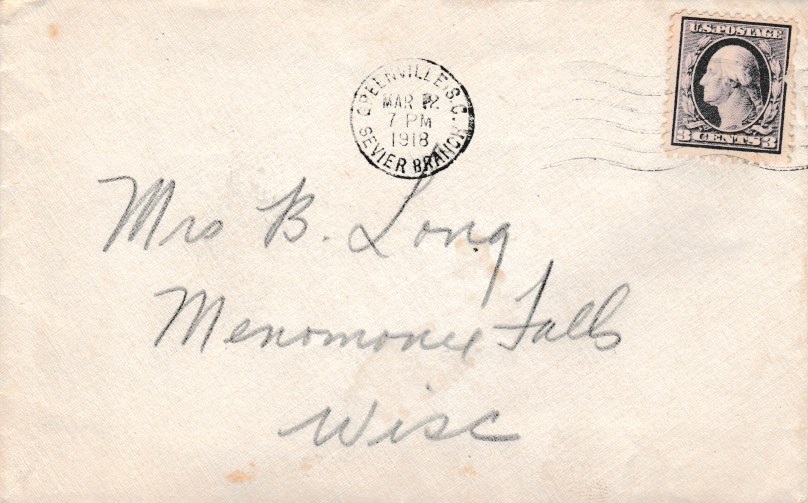 U.S. POSTAGE
3 CENTS 3
GREENVILLE S.C.
MAR
7 PM
1918
SEVIER BRANCH
Mrs B. Long
Menomonee Falls
Wisc